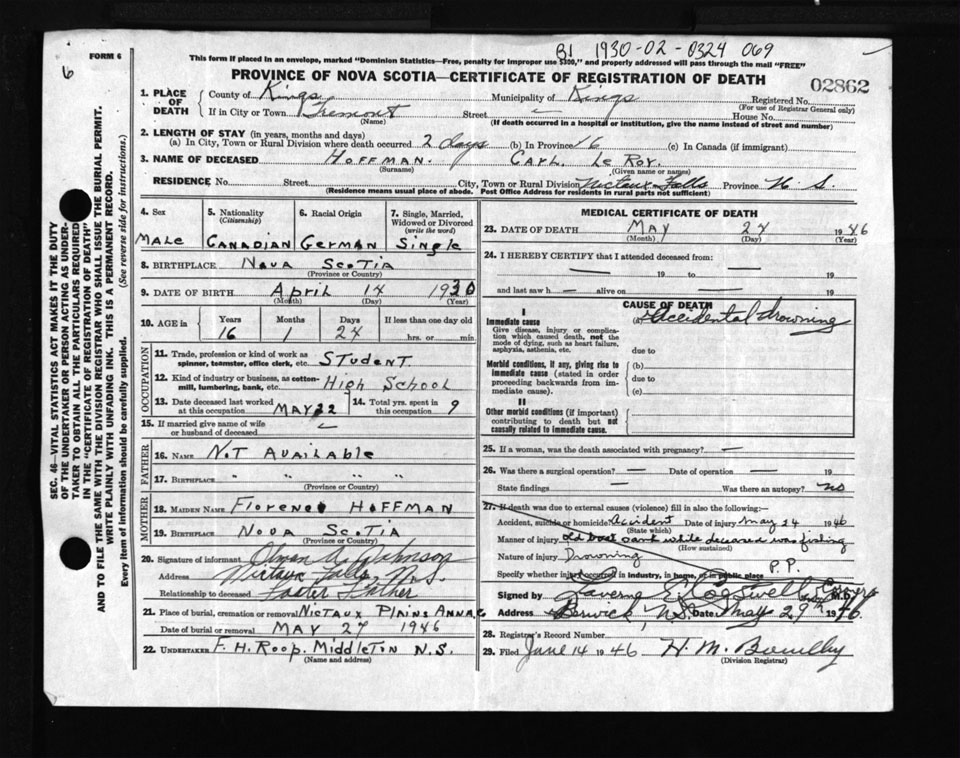 BJ 1930-02-0324 069
FORM 6
6
This form if placed in an envelope, marked "Dominion Statistics—Free, penalty for improper use $300," and properly addressed will pass through the mail "FREE"
PROVINCE OF NOVA SCOTIA—CERTIFICATE OF REGISTRATION OF DEATH
02862
1. PLACE OF DEATH
County of Kings
Municipality of Kings
Registered No.
(For use of Registrar General only)
If in City or Town Tremont
(Name)
Street —
House No.
(If death occurred in a hospital or institution, give the name instead of street and number)
2. LENGTH OF STAY (in years, months and days)
(a) In City, Town or Rural Division where death occurred 2 days (b) In Province 16 (c) In Canada (if immigrant)
3. NAME OF DECEASED HOFFMAN. CARL LE ROY.
(Surname) (Given name or names)
RESIDENCE No. Street City, Town or Rural Division Nictaux Falls Province N. S.
(Residence means usual place of abode. Post Office Address for residents in rural parts not sufficient)
4. Sex
MALE
5. Nationality
(Citizenship)
CANADIAN
6. Racial Origin
GERMAN
7. Single, Married, Widowed or Divorced
(write the word)
Single
8. BIRTHPLACE NOVA SCOTIA
(Province or Country)
9. DATE OF BIRTH April 14 1930
(Month) (Day) (Year)
10. AGE in
Years Months Days If less than one day old
16 1 24 hrs. or min.
OCCUPATION
11. Trade, profession or kind of work as spinner, teamster, office clerk, etc. STUDENT.
12. Kind of industry or business, as cotton-mill, lumbering, bank, etc. High School
13. Date deceased last worked at this occupation MAY 22
14. Total yrs. spent in this occupation 9
15. If married give name of wife or husband of deceased —
FATHER
16. NAME NOT AVAILABLE
17. BIRTHPLACE " " " "
(Province or Country)
MOTHER
18. MAIDEN NAME Florence HOFFMAN
19. BIRTHPLACE NOVA SCOTIA
(Province or Country)
20. Signature of informant Johnson
Address Nictaux Falls, N.S.
Relationship to deceased Foster Father
21. Place of burial, cremation or removal NICTAUX PLAINS ANNA. C
Date of burial or removal MAY 27 1946
22. UNDERTAKER F. H. ROOP. MIDDLETON N.S.
(Name and address)
MEDICAL CERTIFICATE OF DEATH
23. DATE OF DEATH MAY 24 1946
(Month) (Day) (Year)
24. I HEREBY CERTIFY that I attended deceased from:
— 19 to — 19
and last saw h — alive on — 19
CAUSE OF DEATH
I
Immediate cause
Give disease, injury or complication which caused death, not the mode of dying, such as heart failure, asphyxia, asthenia, etc.
(a) Accidental drowning
due to
Morbid conditions, if any, giving rise to immediate cause (stated in order proceeding backwards from immediate cause).
(b)
due to
(c)
II
Other morbid conditions (if important) contributing to death but not causally related to immediate cause.
25. If a woman, was the death associated with pregnancy? —
26. Was there a surgical operation? — Date of operation — 19
State findings — Was there an autopsy? no
27. If death was due to external causes (violence) fill in also the following:—
Accident, suicide or homicide Accident Date of injury May 24 1946
(State which)
Manner of injury old boat sank while deceased was fishing
(How sustained)
Nature of injury Drowning
Specify whether injury occurred in industry, in home, or in public place P.P.
Signed by Laverne E. Cogswell
Address Berwick, N.S. Date May 29th 1946.
28. Registrar's Record Number
29. Filed June 14 1946 H. M.
(Division Registrar)
SEC. 46—VITAL STATISTICS ACT MAKES IT THE DUTY
OF THE UNDERTAKER OR PERSON ACTING AS UNDER-
TAKER TO OBTAIN ALL THE PARTICULARS REQUIRED
IN THE "CERTIFICATE OF REGISTRATION OF DEATH"
AND TO FILE THE SAME WITH THE DIVISION REGISTRAR WHO SHALL ISSUE THE BURIAL PERMIT.
WRITE PLAINLY WITH UNFADING INK. THIS IS A PERMANENT RECORD.
Every item of information should be carefully supplied. (See reverse side for instructions.)